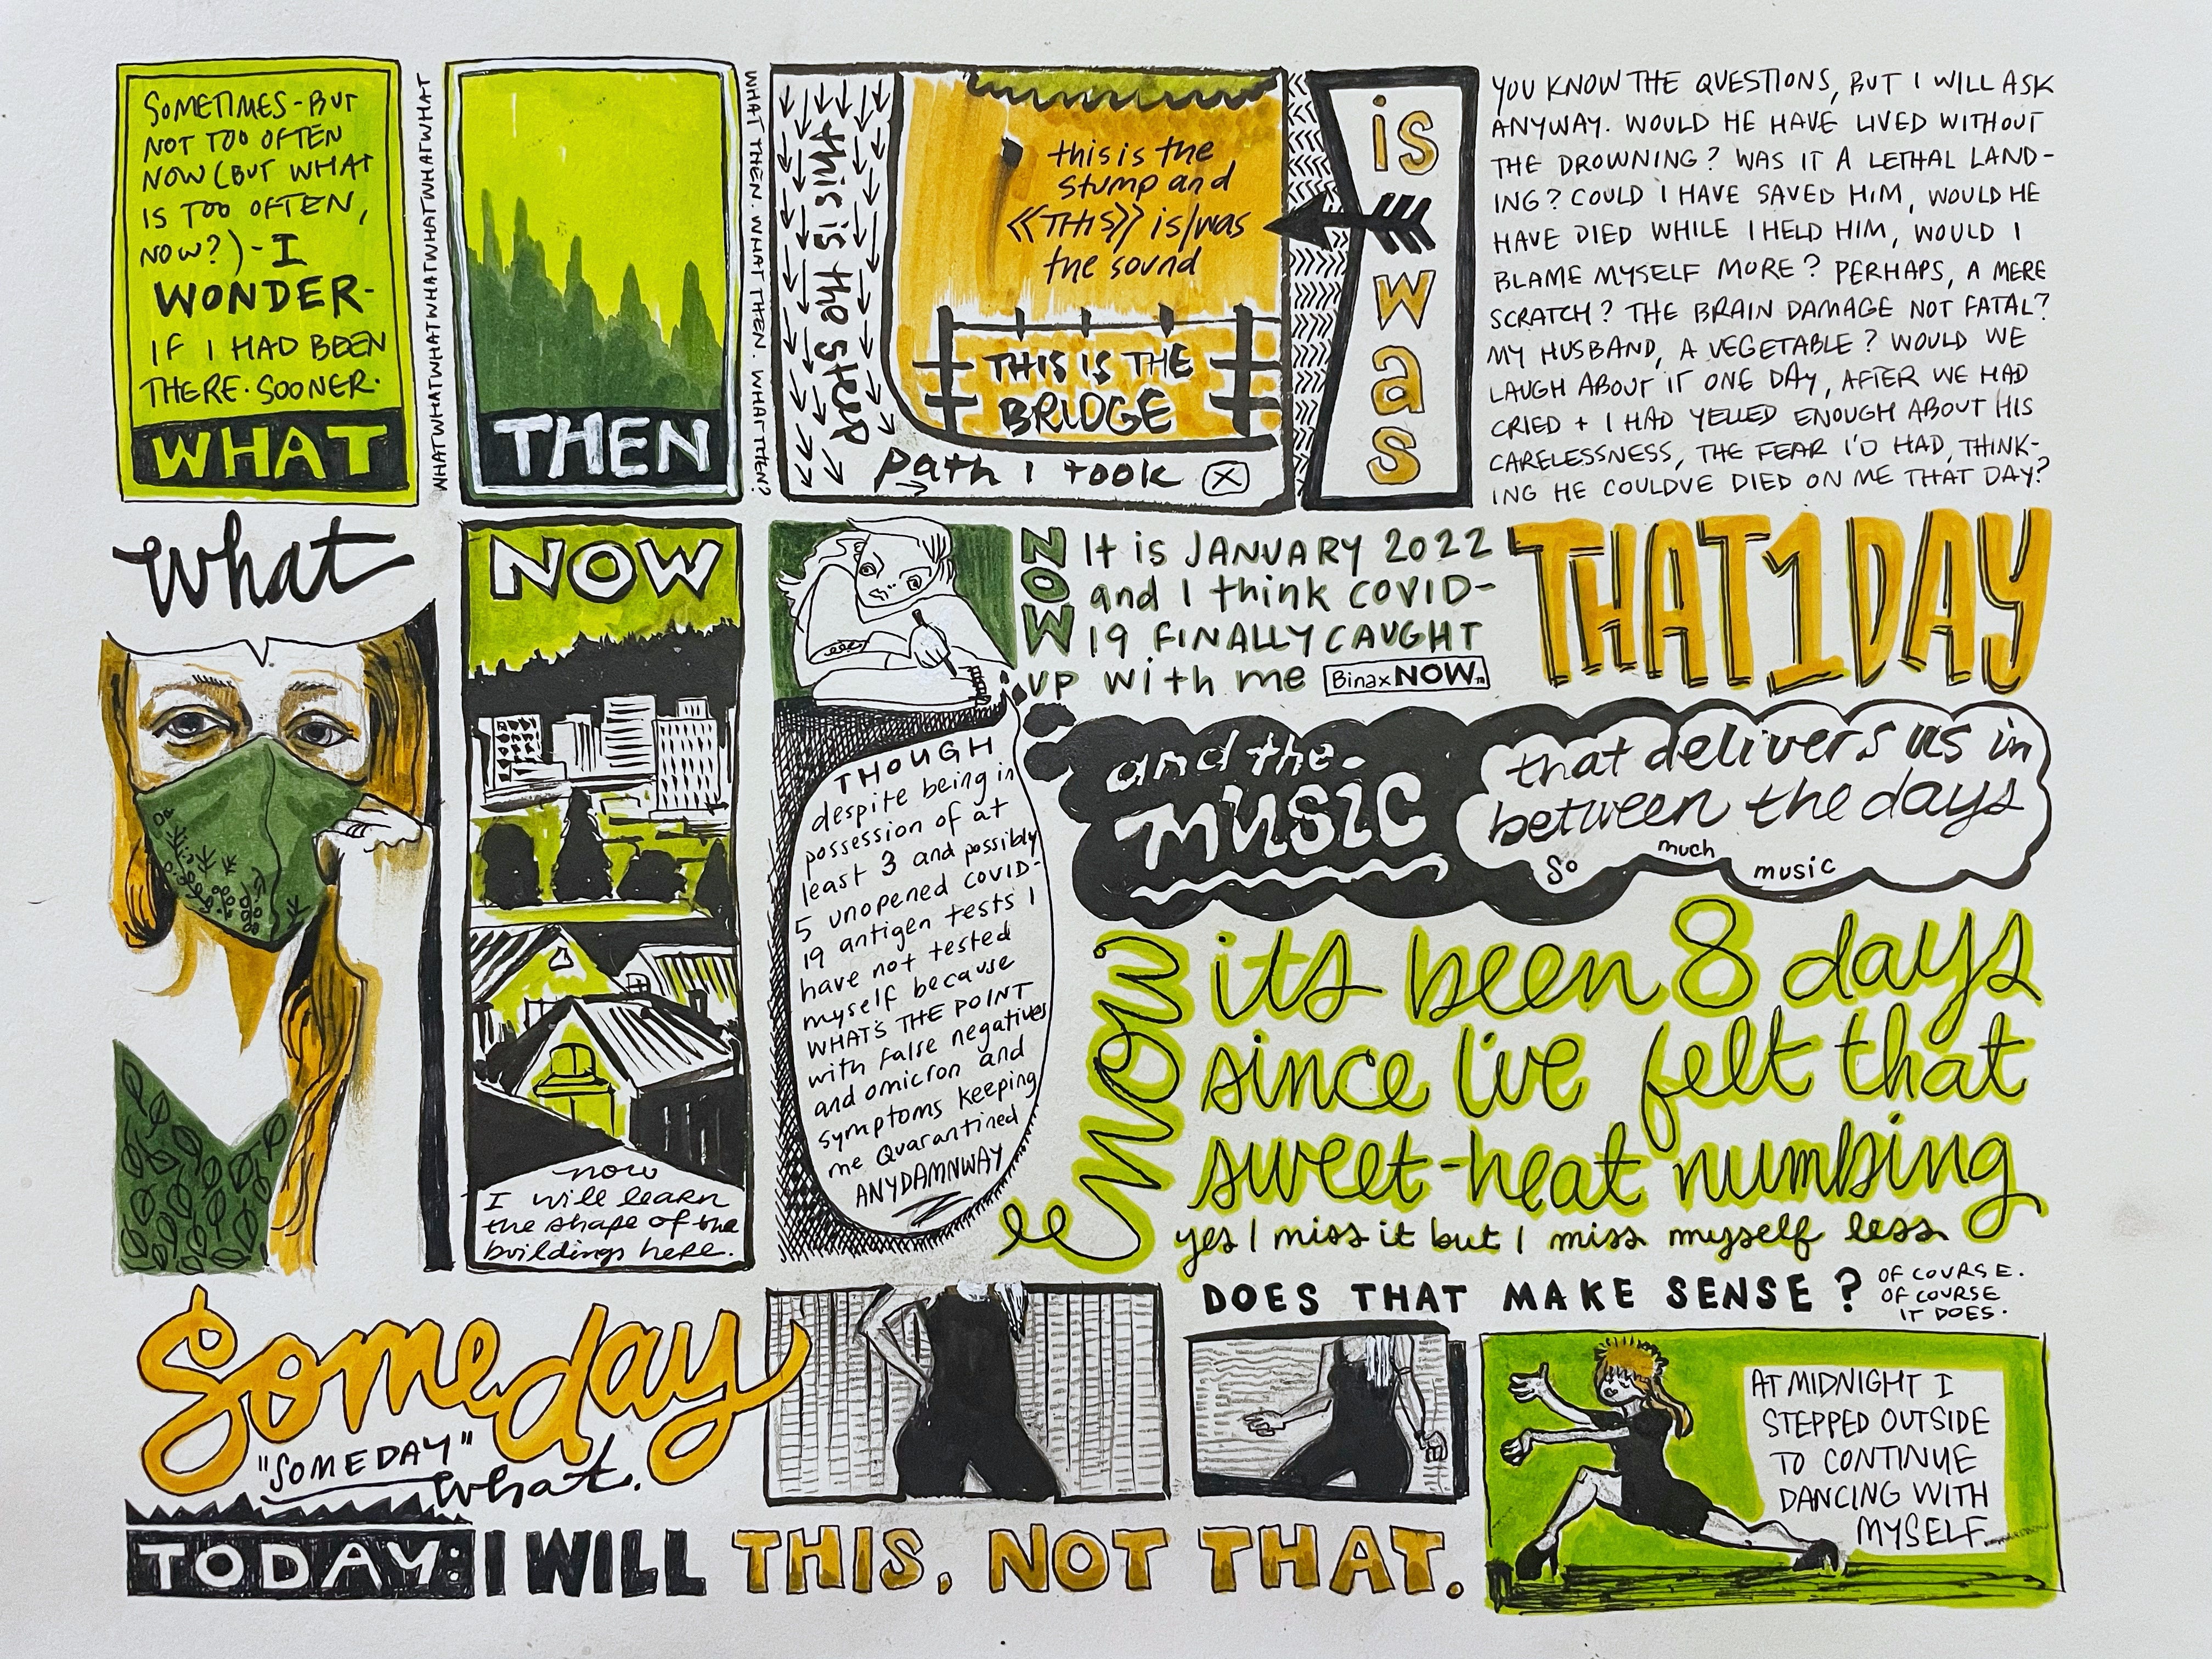 SOMETIMES-BUT
NOT TOO OFTEN
NOW (BUT WHAT
IS TOO OFTEN,
NOW?)-I
WONDER-
IF I HAD BEEN
THERE. SOONER.
WHAT
WHATWHATWHATWHATWHATWHATWHATWHATWHAT
THEN
WHAT THEN. WHAT THEN. WHAT THEN. WHAT THEN?
this is the step
path I took
this is the
stump and
《THIS》 is/was
the sound
THIS IS THE
BRIDGE
is
was
YOU KNOW THE QUESTIONS, BUT I WILL ASK
ANYWAY. WOULD HE HAVE LIVED WITHOUT
THE DROWNING? WAS IT A LETHAL LAND-
ING? COULD I HAVE SAVED HIM, WOULD HE
HAVE DIED WHILE I HELD HIM, WOULD I
BLAME MYSELF MORE? PERHAPS, A MERE
SCRATCH? THE BRAIN DAMAGE NOT FATAL?
MY HUSBAND, A VEGETABLE? WOULD WE
LAUGH ABOUT IT ONE DAY, AFTER WE HAD
CRIED + I HAD YELLED ENOUGH ABOUT HIS
CARELESSNESS, THE FEAR I'D HAD, THINK-
ING HE COULDVE DIED ON ME THAT DAY?
what
NOW
now
I will learn
the shape of the
buildings here.
NOW
It is JANUARY 2022
and I think COVID-
19 FINALLY CAUGHT
UP with me BinaxNOW™
THOUGH
despite being in
possession of at
least 3 and possibly
5 unopened COVID-
19 antigen tests I
have not tested
myself because
WHAT'S THE POINT
with false negatives
and omicron and
symptoms keeping
me Quarantined
ANYDAMNWAY
THAT1DAY
and the
MUSIC
that delivers us in
between the days
So much music
now
its been 8 days
since I've felt that
sweet-heat numbing
yes I miss it but I miss myself less
DOES THAT MAKE SENSE?
OF COURSE.
OF COURSE
IT DOES.
Someday
"SOMEDAY"
what.
TODAY: I WILL THIS, NOT THAT.
AT MIDNIGHT I
STEPPED OUTSIDE
TO CONTINUE
DANCING WITH
MYSELF.